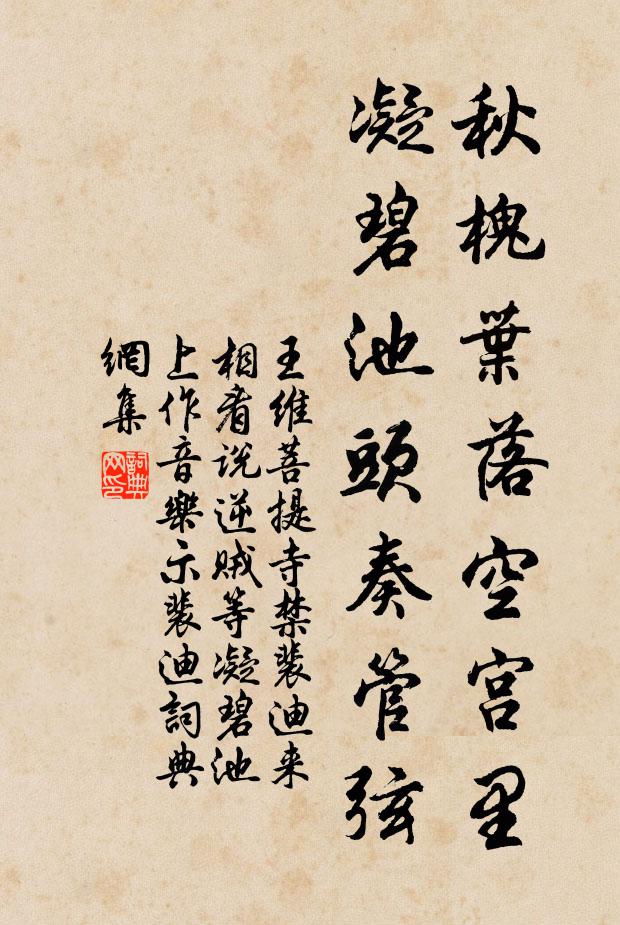 秋槐葉落空宮里
凝碧池頭奏管弦
王維菩提寺禁裴迪来
相看説逆賊等凝碧池
上作音樂示裴迪詞典
網集
詞典
网印